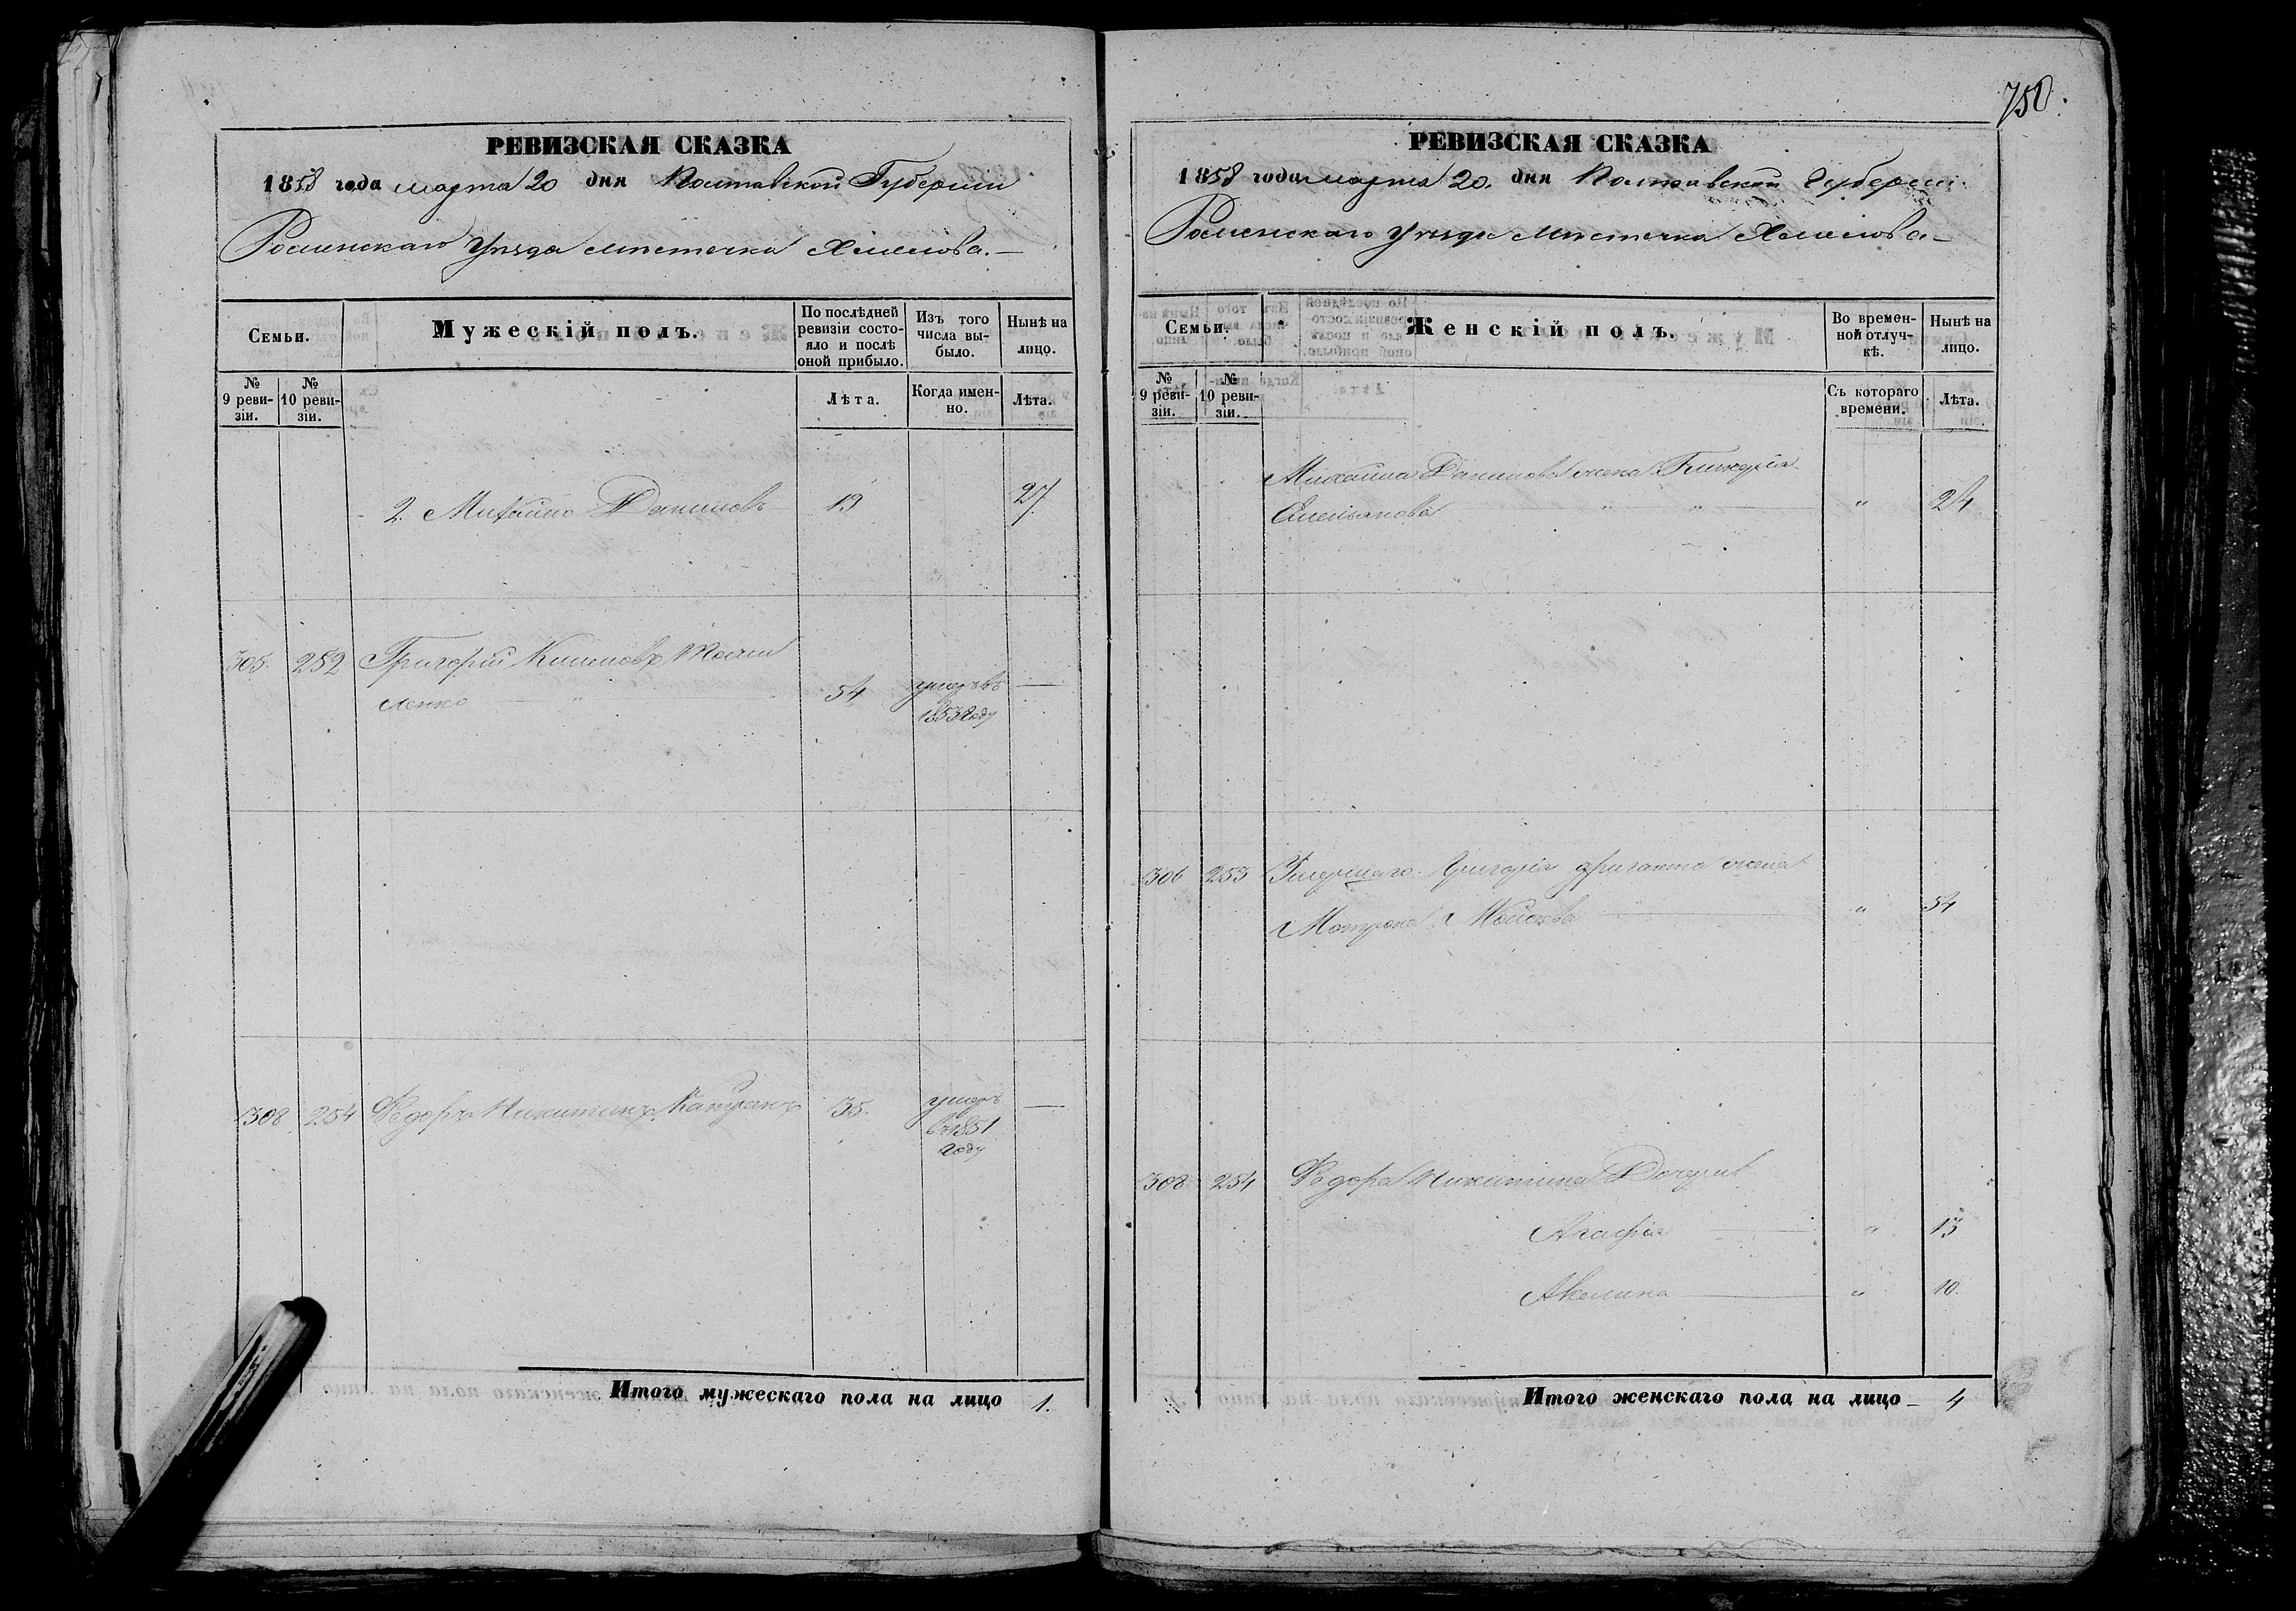 РЕВИЗСКАЯ СКАЗКА
1858 года марта 20 дня Полтавской Губернии
Роменскаго Уезда местечка Хмелова.—
Семьи.
Мужескій полъ.
По послѣдней ревизіи состояло и послѣ оной прибыло.
Изъ того числа выбыло.
Нынѣ на лицо.
№ 9 ревизіи.
№ 10 ревизіи.
Лѣта.
Когда именно.
Лѣта.
2. Михайло Даниловъ 19 27
305. 252 Григорий Климовъ
ленко — " — 54 умеръ въ —
1853 году
308 254 Федоръ Никитинъ Капранъ 35. умеръ —
въ 1851
году
Итого мужескаго пола на лицо 1.
750.
РЕВИЗСКАЯ СКАЗКА
1858 года марта 20. дня Полтавской Губернии
Роменскаго Уезда местечка Хмелова—
Семьи.
Женскій полъ.
Во временной отлучкѣ.
Нынѣ на лицо.
№ 9 ревизіи.
№ 10 ревизіи.
Съ котораго времени.
Лѣта.
Михайла Данилова жена Гликерія
Емельянова " " — " 24
306 253 Умершаго Григорія жена
Мотрона Моисеева — " 54
308 254 Федора Никитина Дочери
Агафія — " 13
Акелина — " 10.
Итого женскаго пола на лицо — 4